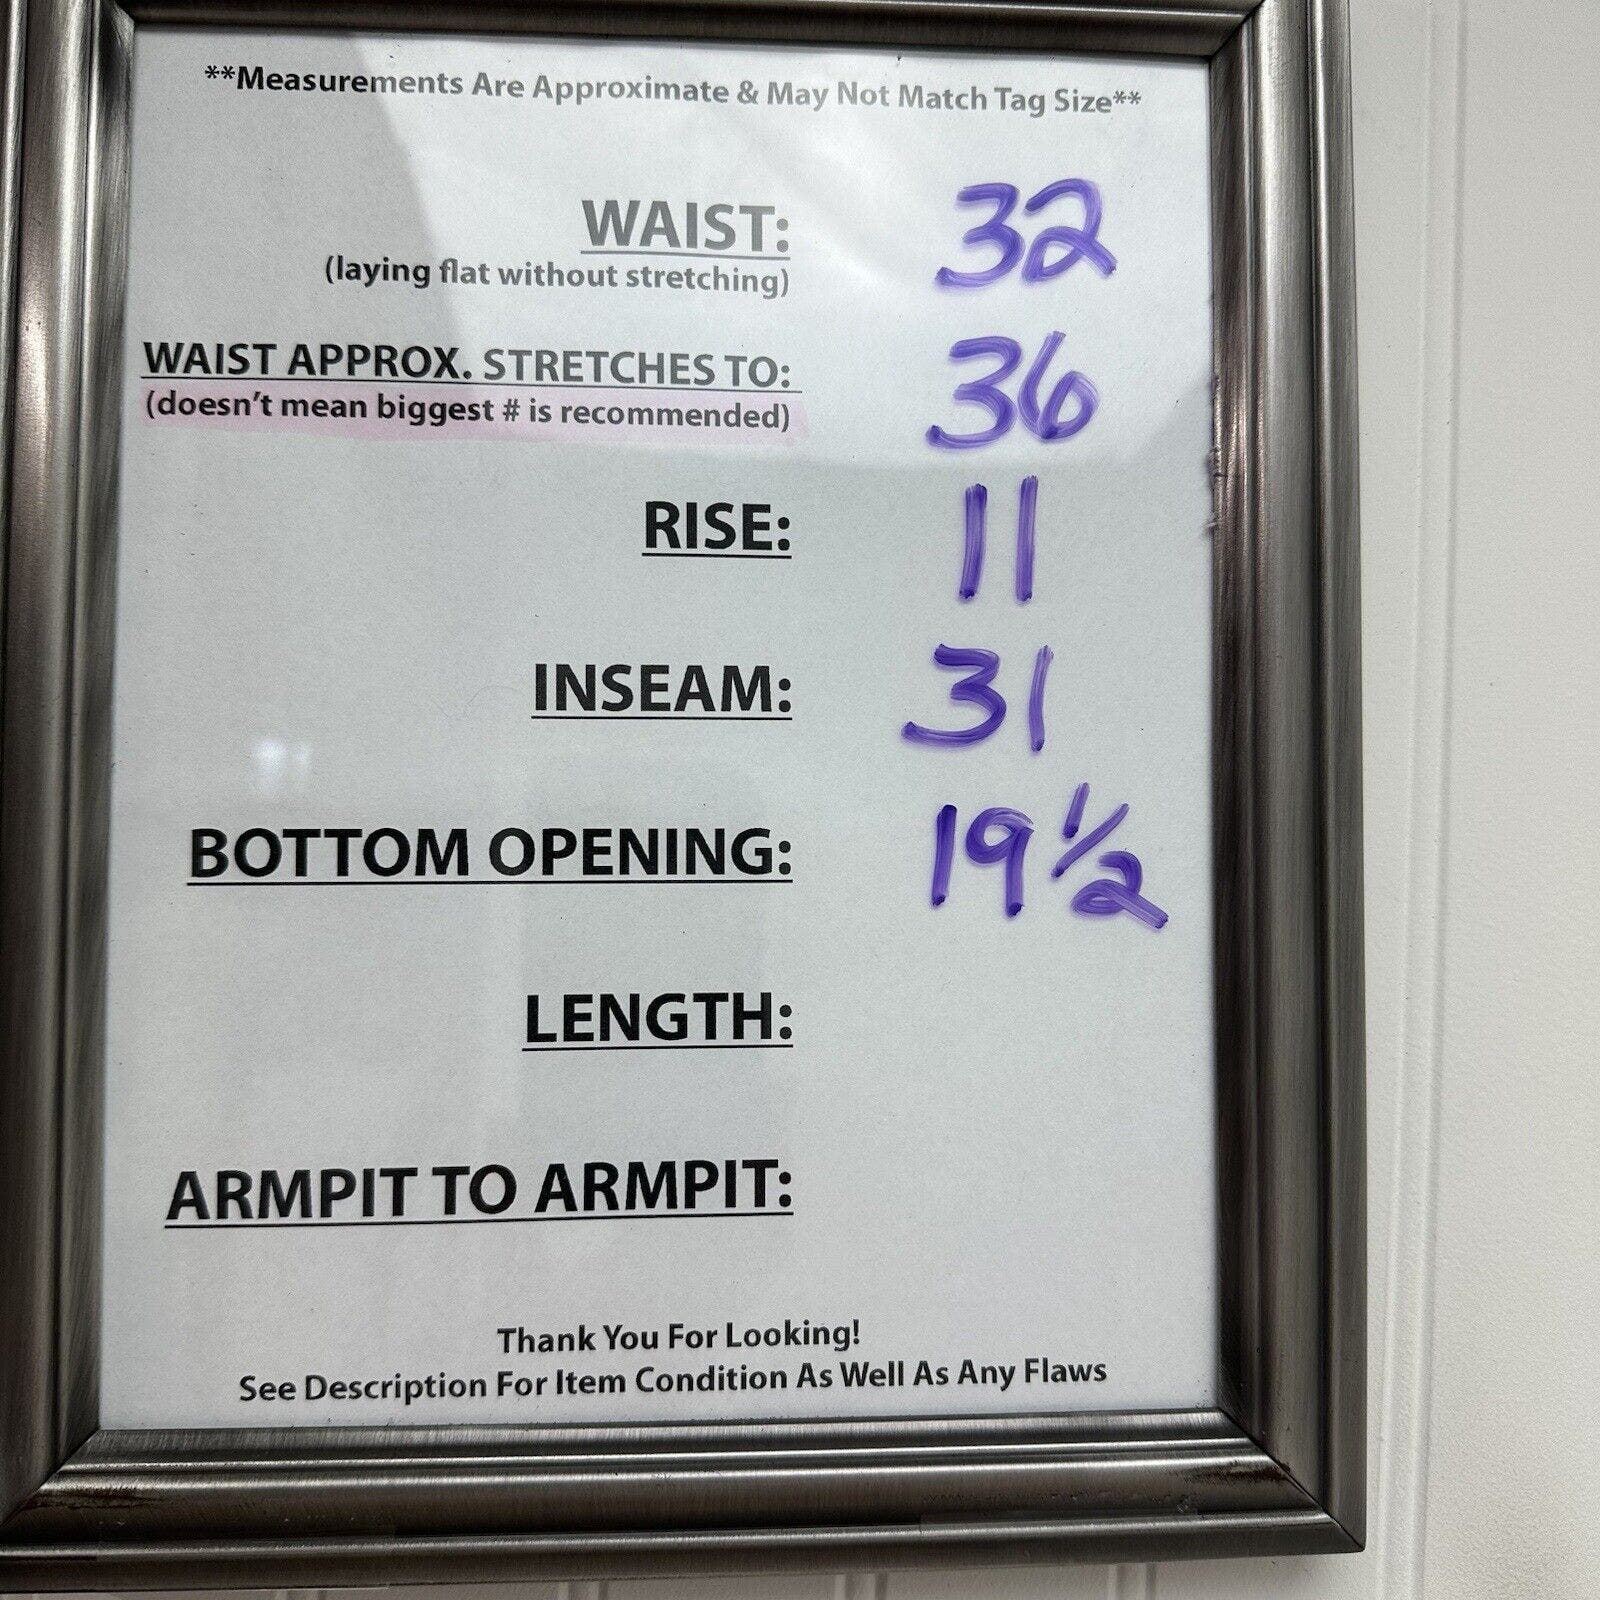 **Measurements Are Approximate & May Not Match Tag Size**
WAIST: 32
(laying flat without stretching)
WAIST APPROX. STRETCHES TO: 36
(doesn't mean biggest # is recommended)
RISE: 11
INSEAM: 31
BOTTOM OPENING: 19 1/2
LENGTH:
ARMPIT TO ARMPIT:
Thank You For Looking!
See Description For Item Condition As Well As Any Flaws